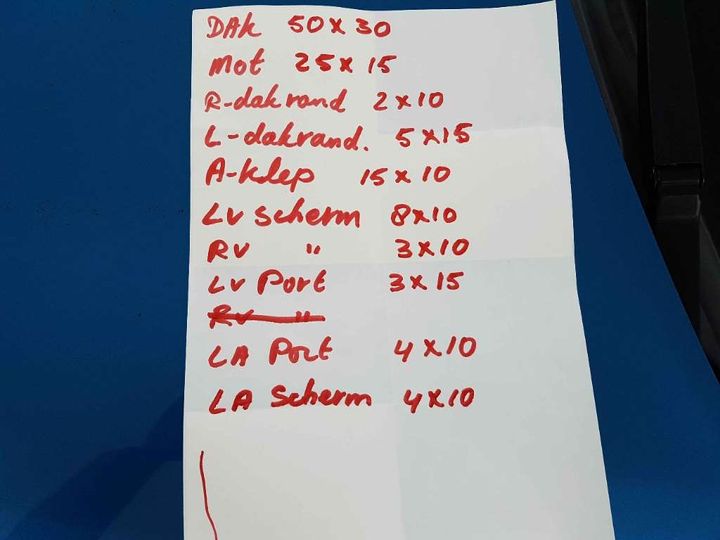 DAK 50 x 30
Mot 25 x 15
R-dakrand 2 x 10
L-dakrand. 5 x 15
A-klep 15 x 10
LV scherm 8 x 10
RV " 3 x 10
LV Port 3 x 15
RV "
LA Port 4 x 10
LA Scherm 4 x 10